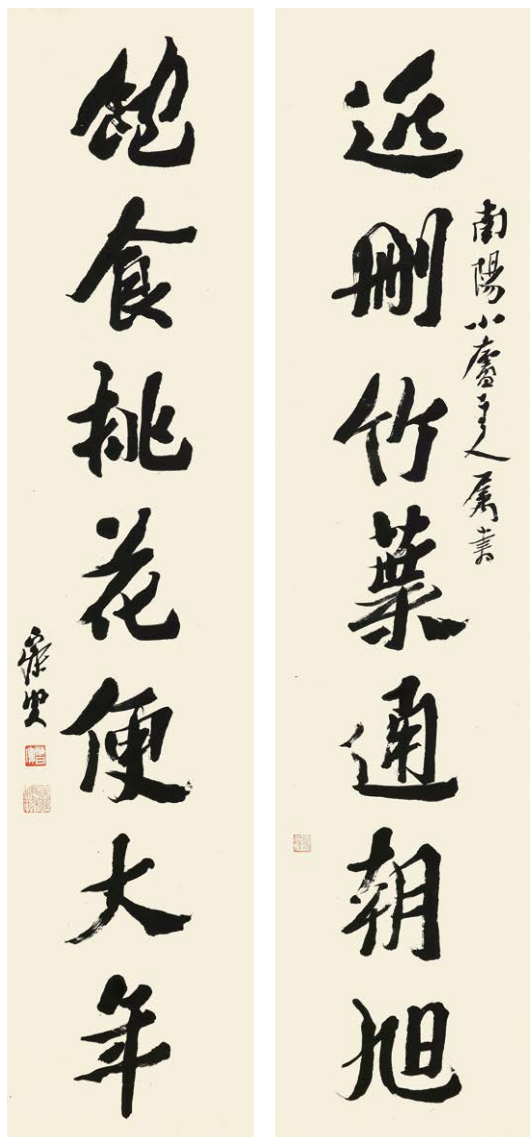 近刪竹葉通朝旭
南陽小廬主人属書
飽食桃花便大年
寐叟